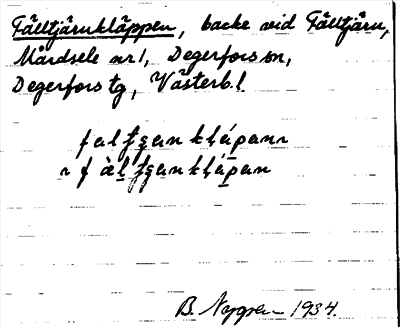 Fälltjärnkläppen, backe vid Fälltjärn,
Mårdsele nr 1, Degerfors sn,
Degerfors tg, Västerb. l.
B. Nygren 1934.